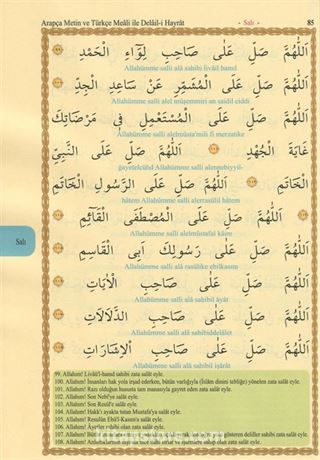 Arapça Metin ve Türkçe Meâli ile Delâil-i Hayrât - Salı - 85
اَللّٰهُمَّ صَلِّ عَلٰى صَاحِبِ لِوَٓاءِ الْحَمْدِ
Allahümme salli alâ sahibi livâil hamd
اَللّٰهُمَّ صَلِّ عَلَى الْمُشَمِّرِ عَنْ سَاعِدِ الْجِدِّ
Allahümme salli alel müşemmiri an saidil ciddi
اَللّٰهُمَّ صَلِّ عَلَى الْمُسْتَعْمِلِ فِى مَرْضَاتِكَ
Allahümme salli alelmüsta'mili fî merzatike
غَايَةَ الْجُهْدِ اَللّٰهُمَّ صَلِّ عَلَى النَّبِىِّ
ğayatelcühd Allahümme salli alennebiyyil-
الْخَاتَمِ اَللّٰهُمَّ صَلِّ عَلَى الرَّسُولِ الْخَاتَمِ
hâtem Allahümme salli alerrasûlil hâtem
اَللّٰهُمَّ صَلِّ عَلَى الْمُصْطَفَى الْقَٓائِمِ
Allahümme salli alelmustafal kâim
Salı
اَللّٰهُمَّ صَلِّ عَلٰى رَسُولِكَ اَبِى الْقَاسِمِ
Allahümme salli alâ rasûlike ebilkasım
اَللّٰهُمَّ صَلِّ عَلٰى صَاحِبِ الْاٰيَاتِ
Allahümme salli alâ sahibil âyât
اَللّٰهُمَّ صَلِّ عَلٰى صَاحِبِ الدَّلَالَاتِ
Allahümme salli alâ sahibiddelâlet
اَللّٰهُمَّ صَلِّ عَلٰى صَاحِبِ الْاِشَارَاتِ
Allahümme salli alâ sahibil işârât
99. Allahım! Livâü'l-hamd sahibi zata salât eyle.
100. Allahım! İnsanları hak yola irşad ederken, bütün varlığıyla (İslâm dinini tebliğe) yönelen zata salât eyle.
101. Allahım! Razı olduğun hususta tam manasıyla gayret eden zata salât eyle.
102. Allahım! Son Nebî'ye salât eyle.
103. Allahım! Son Resûl'e salât eyle.
104. Allahım! Hakk'ı ayakta tutan Mustafa'ya salât eyle.
105. Allahım! Resulün Ebü'l-Kasım'a salât eyle.
106. Allahım! Âyetler sahibi olan zata salât eyle.
107. Allahım! gösteren deliller sahibi zata salât eyle.
108. Allahım! sahibi olan zata salât eyle.